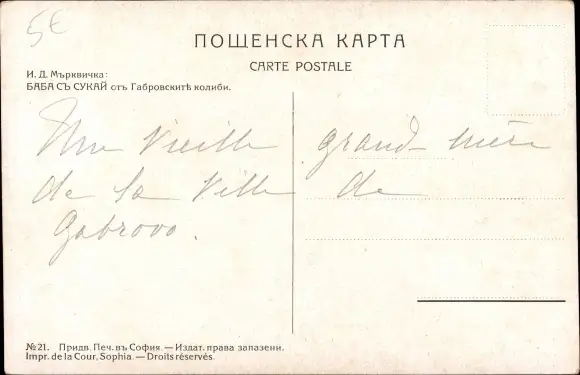 5€
ПОЩЕНСКА КАРТА
CARTE POSTALE
И. Д. Мърквичка:
БАБА СЪ СУКАЙ отъ Габровскитѣ колиби.
Une Vieille grand-mère
de la Ville de
Gabrovo.
№21. Придв. Печ. въ София. — Издат. права запазени.
Impr. de la Cour, Sophia. — Droits réservés.